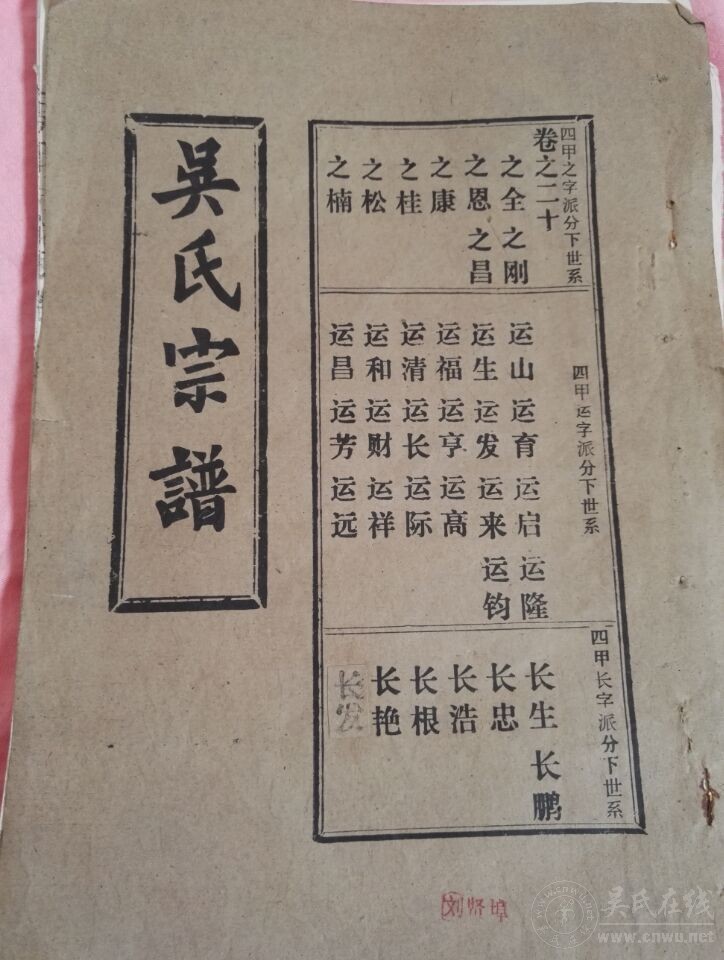 吳氏宗譜
四甲之字派分下世系
卷之二十
之全 之刚
之恩 之昌
之康
之桂
之松
之楠
四甲运字派分下世系
运山 运育 运启 运隆
运生 运发 运来 运钧
运福 运亨 运高
运清 运长 运际
运和 运财 运祥
运昌 运芳 运远
四甲长字派分下世系
长生 长鹏
长忠
长浩
长根
长艳
长发
刘贤埠
吴氏在线
www.cnwu.net